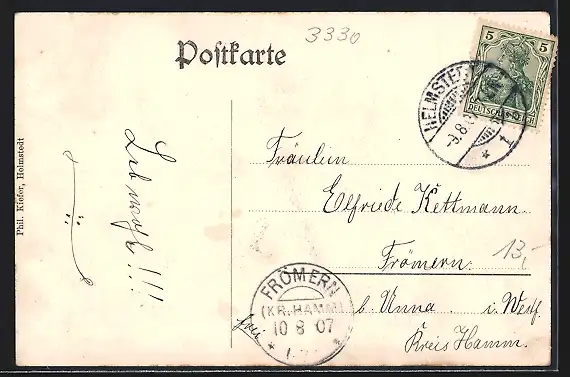 Postkarte
3330
5 5
DEUTSCHES REICH
HELMSTEDT
-9.8.07
* 1
Phil. Kiefer, Helmstedt
Lebwohl!!!
Fräulein
Elfriede Kettmann
Frömern.
13,-
b. Unna i. Westf.
Kreis Hamm.
FRÖMERN
(KR. HAMM)
10 8 07